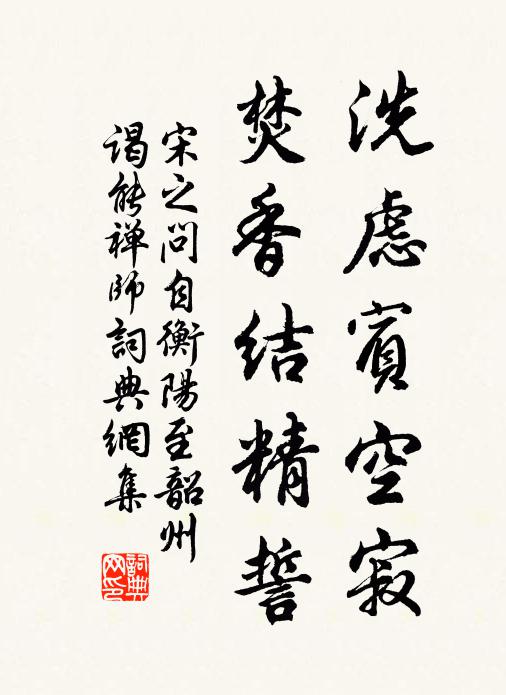 洗慮賓空寂
焚香結精誓
宋之問自衡陽至韶州
謁能禪師詞典網集
詞典
网印